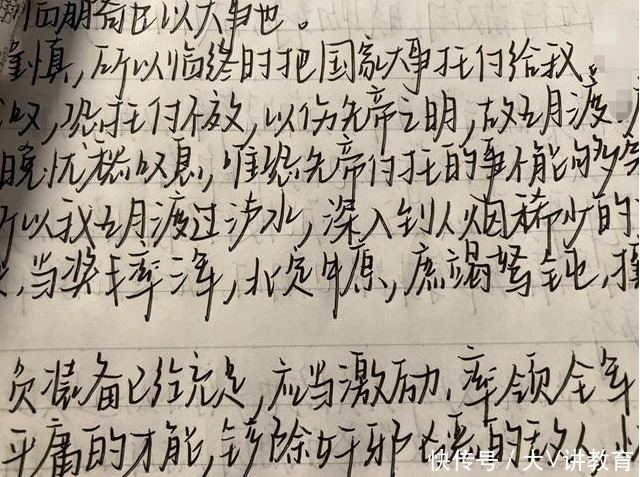 临崩寄臣以大事也。
谨慎,所以临终时把国家大事托付给我。
叹,恐托付不效,以伤先帝之明,故五月渡
晚忧愁叹息,唯恐先帝付托的事不能够
所以我五月渡过泸水,深入到人烟稀少的
,当奖率三军,北定中原,庶竭驽钝,攘
员装备已经充足,应当激励、率领全军
平庸的才能,铲除奸邪凶恶的敌人,
快传号/大V讲教育